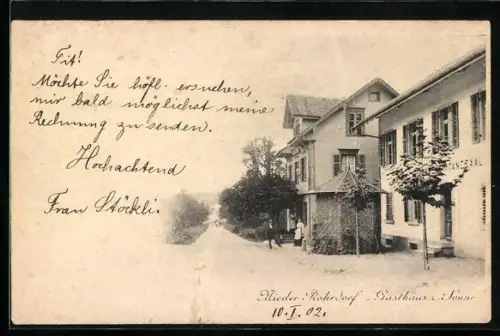 Tit!
Möchte Sie höfl. ersuchen,
mir bald möglichst meine
Rechnung zu senden.
Hochachtend
Frau Stöckli.
TANZSAAL
Nieder-Rohrdorf - Gasthaus z. Sonne
10. I. 02.